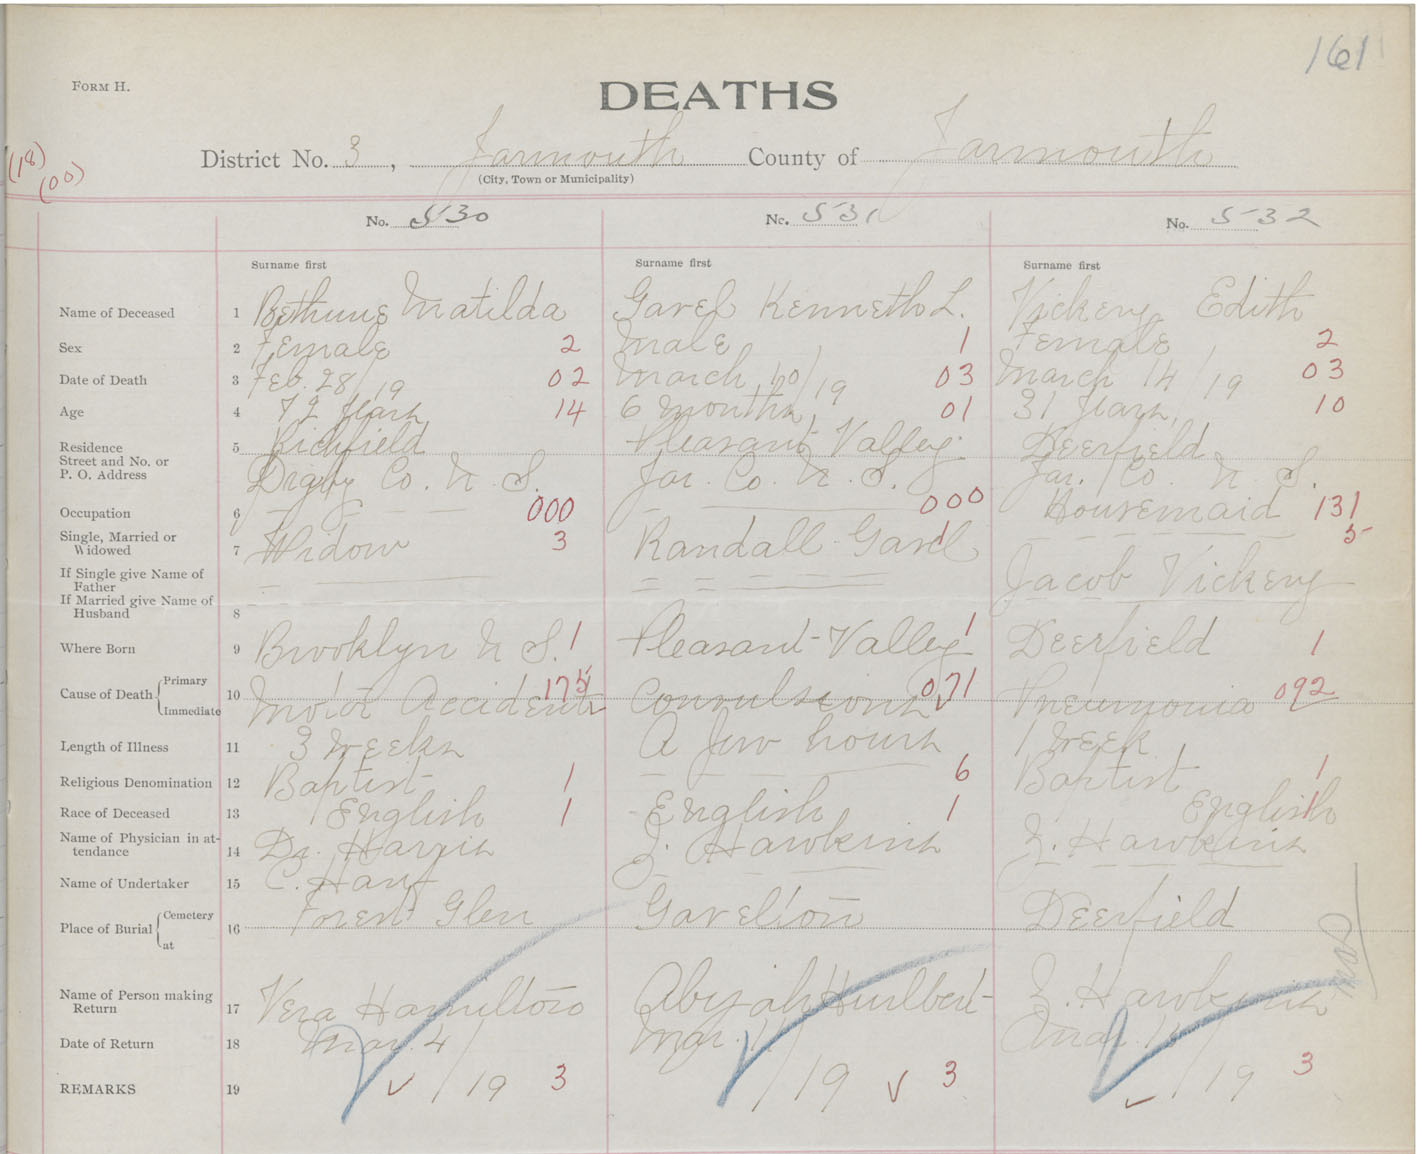 161
FORM H.
DEATHS
(18)
(00)
District No. 3, Yarmouth County of Yarmouth
(City, Town or Municipality)
No. 530 No. 531 No. 532
Surname first Surname first Surname first
Name of Deceased 1 Bethune Matilda Gavel Kenneth L. Vickery Edith
Sex 2 Female 2 Male 1 Female 2
Date of Death 3 Feb. 28/19 02 March 10/19 03 March 14/19 03
Age 4 72 years 14 6 months 01 31 years 10
Residence
Street and No. or
P. O. Address
5 Richfield Pleasant Valley Deerfield
Digby Co. N. S. Yar. Co. N. S. Yar. Co. N. S.
Occupation 6 000 000 Housemaid 131
Single, Married or
Widowed
7 Widow 3 Randall Gavel 5
If Single give Name of
Father
If Married give Name of
Husband
8 Jacob Vickery
Where Born 9 Brooklyn N. S. 1 Pleasant Valley 1 Deerfield 1
Cause of Death { Primary
Immediate
10 Motor Accident 175 Convulsions 071 Pneumonia 092
Length of Illness 11 3 weeks A few hours 1 week
Religious Denomination 12 Baptist 1 6 Baptist 1
Race of Deceased 13 English 1 English 1 English 1
Name of Physician in at-
tendance
14 Dr. Harris Z. Hawkins Z. Hawkins
Name of Undertaker 15 C.
Place of Burial { Cemetery
at
16 Forest Glen Gavelton Deerfield
Name of Person making
Return
17 Vera Hamilton Abijah Hurlbert Z. Hawkins
Date of Return 18 Mar. 4/19 Mar. 11/19 Mar. /19
REMARKS 19 3 3 3